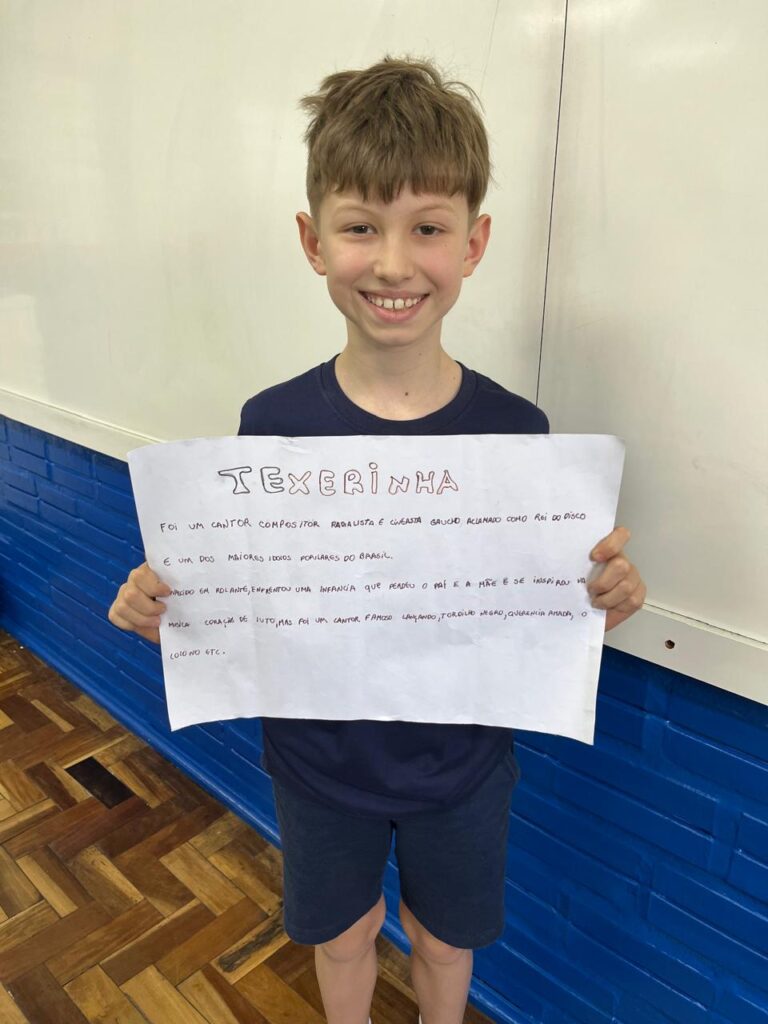 TEXERINHA
FOI UM CANTOR COMPOSITOR RADIALISTA E CINEASTA GAUCHO ACLAMADO COMO REI DO DISCO
E UM DOS MAIORES IDOLOS POPULARES DO BRASIL.
NASCIDO EM ROLANTE, ENFRENTOU UMA INFANCIA QUE PERDEU O PAI E A MÃE E SE INSPIROU NA
MUSICA CORAÇÃO DE LUTO, MAS FOI UM CANTOR FAMOSO LANÇANDO, TORDILHO NEGRO, QUERENCIA AMADA, O
COLONO ETC.